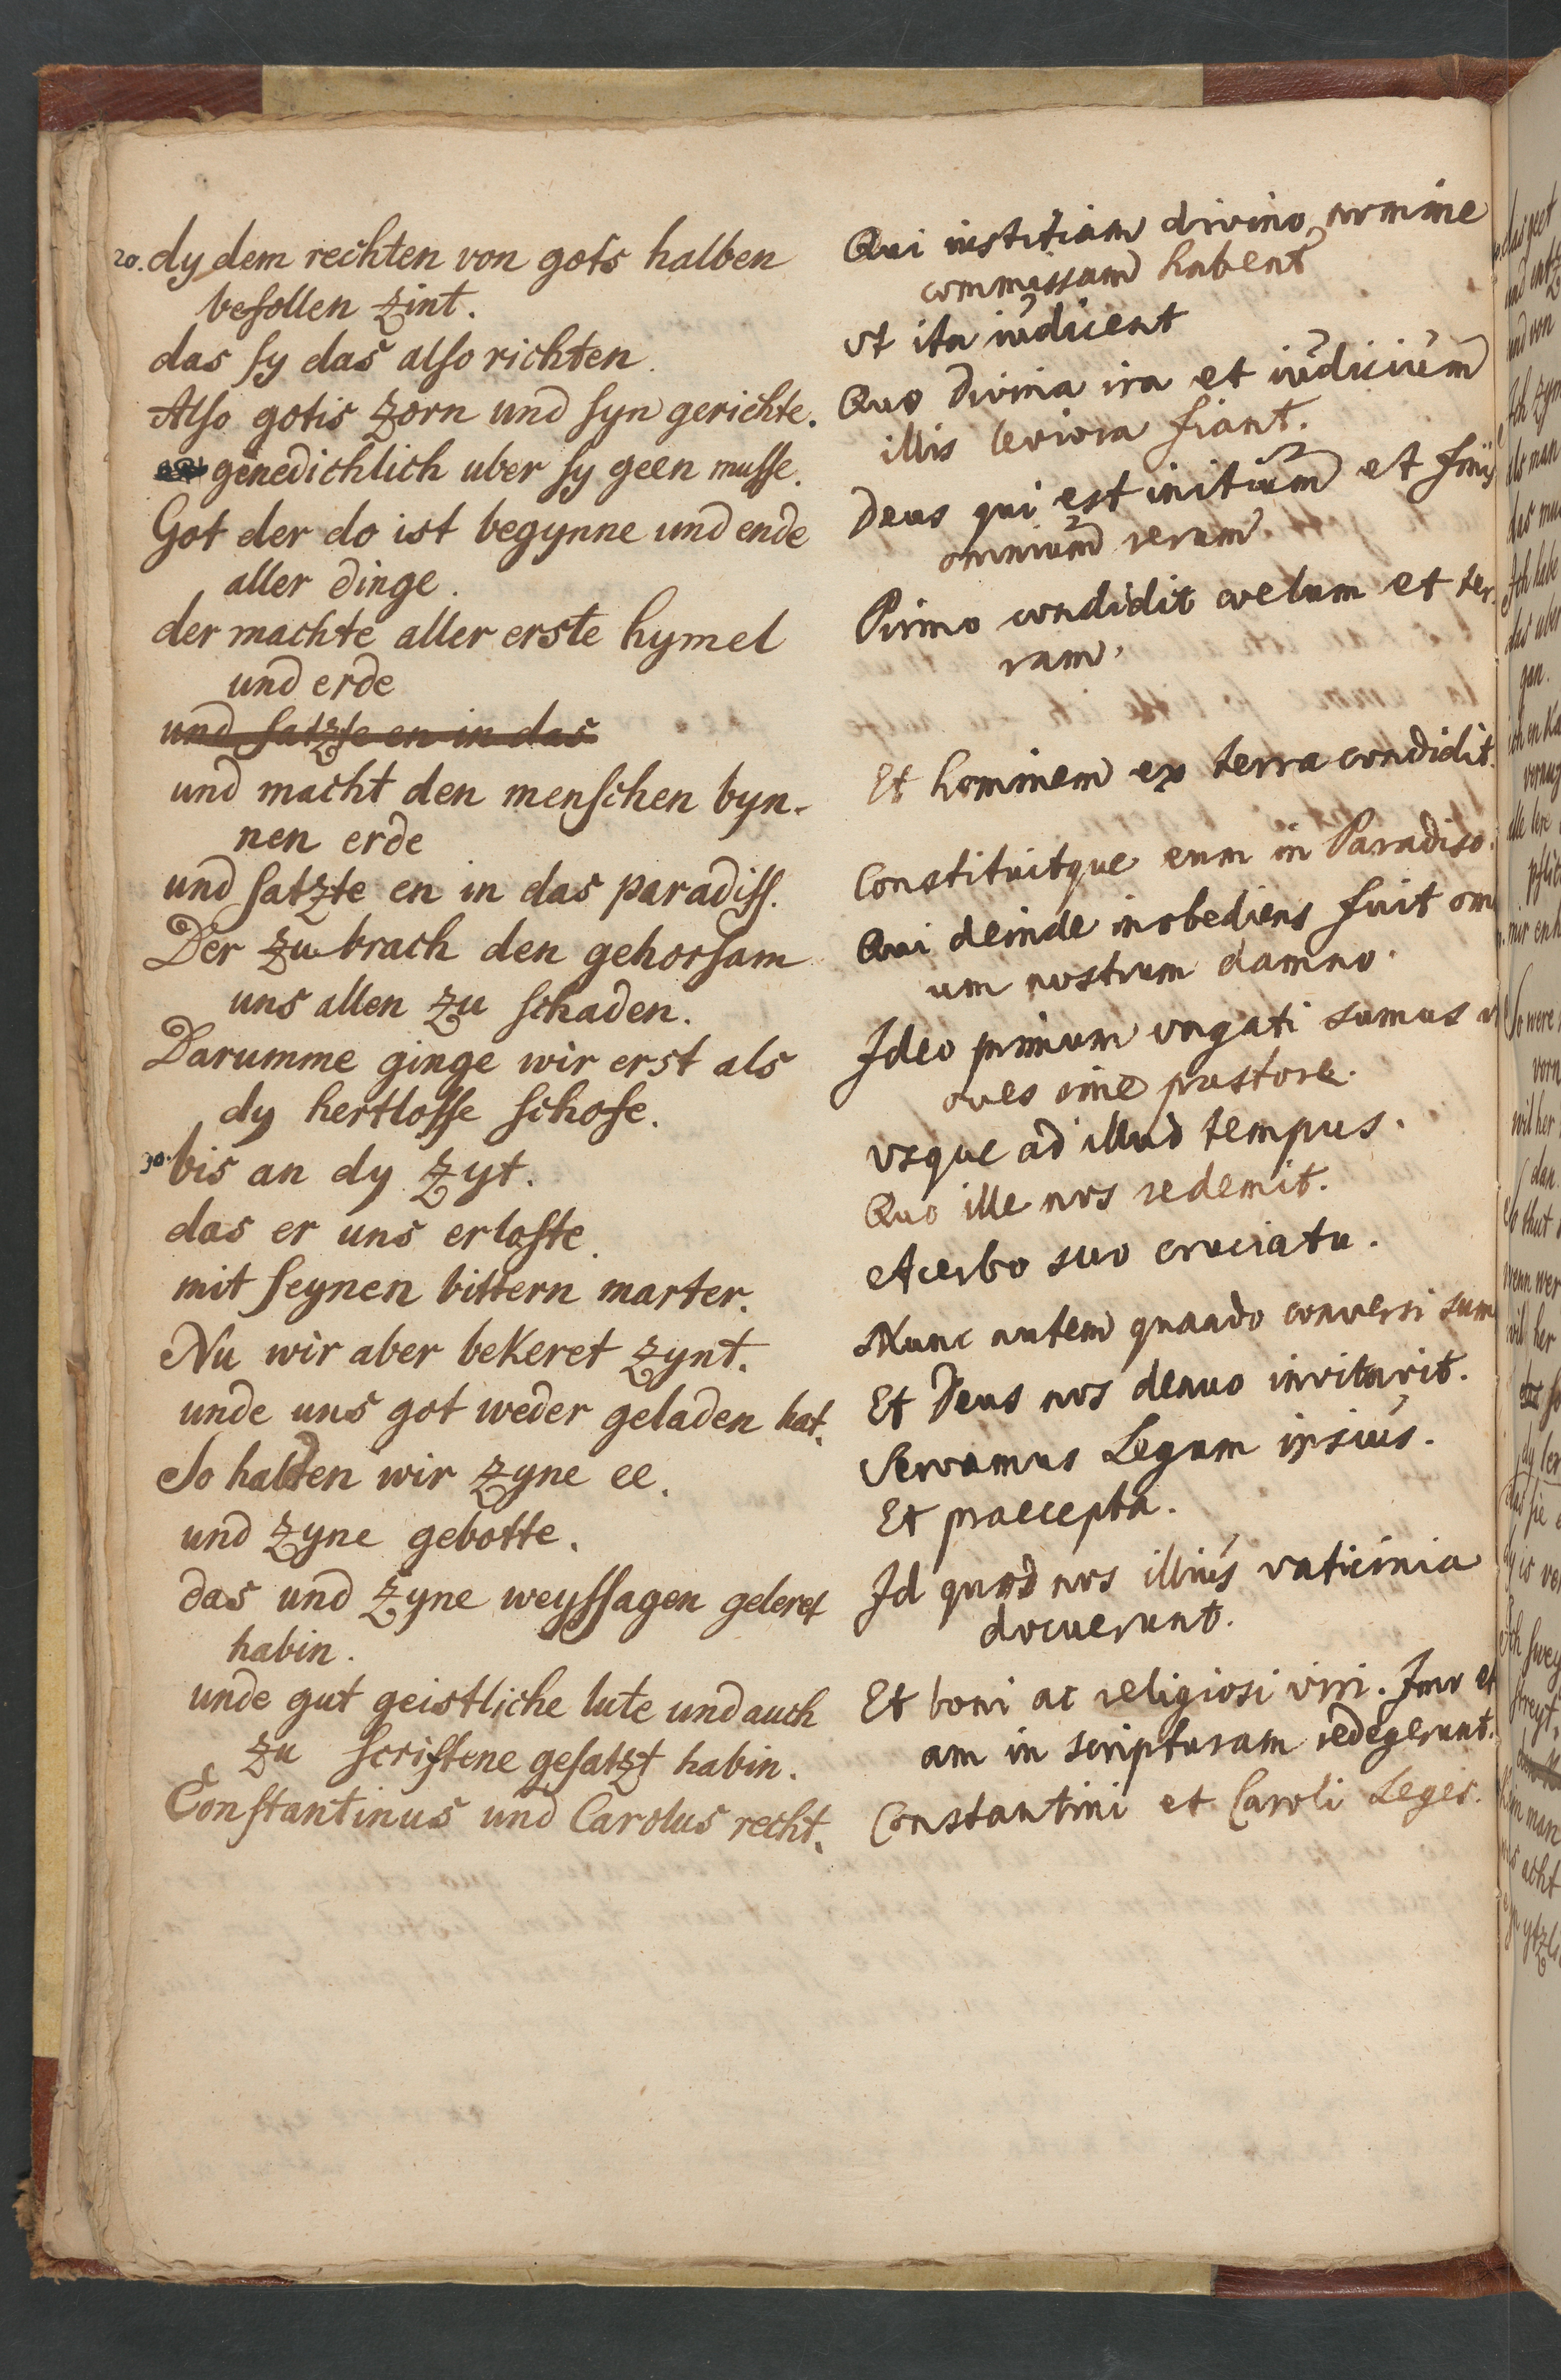 20. dy dem rechten von gots halben
befollen zint.
das ſy das alſo richten.
Alſo gotis zorn und ſyn gerichte.
genedichlich uber ſy geen muſſe.
Got der do ist begynne und ende
aller dinge.
der machte aller erste hymel
und erde
und ſatzte en in das
und macht den menſchen byn-
nen erde
und ſatzte en in das paradiſſ.
Der zu brach den gehorſam
uns allen zu ſchaden.
Darumme ginge wir erst als
dy hertloſſe ſchofe.
30. bis an dy zyt.
das er uns erloſte.
mit ſeynen bittern marter.
Nu wir aber bekeret zynt.
unde uns got weder geladen hat.
So halden wir zyne ee.
und zyne gebotte.
das und zyne weyſſagen geleret
habin.
unde gut geistliche lute und auch
zu ſcriftene geſatzt habin.
Conſtantinus und Carolus recht.
Qui iustitiam divino nomine
commissam habent
vt ita iudicent
Quo divina ira et iudicium
illis leviora fiant.
Deus qui est initium et finis
omnium rerum.
Primo condidit coelum et ter-
ram.
Et hominem ex terra condidit.
Constituitque eum in Paradiso.
Qui deinde inobediens fuit om
um nostrum damno.
Ideo primum vagati sumus
oves sine pastore.
vsque ad illud tempus.
Quo ille nos redemit.
Acerbo suo cruciatu.
Nunc autem quando conversi sum
Et Deus nos denuo invitavit.
Servamus Legem ipsius.
Et praecepta.
Id quod nos illius vaticinia
docuerunt.
Et boni ac religiosi viri. Imo et
am in scripturam redegerunt.
Constantini et Caroli Leges.